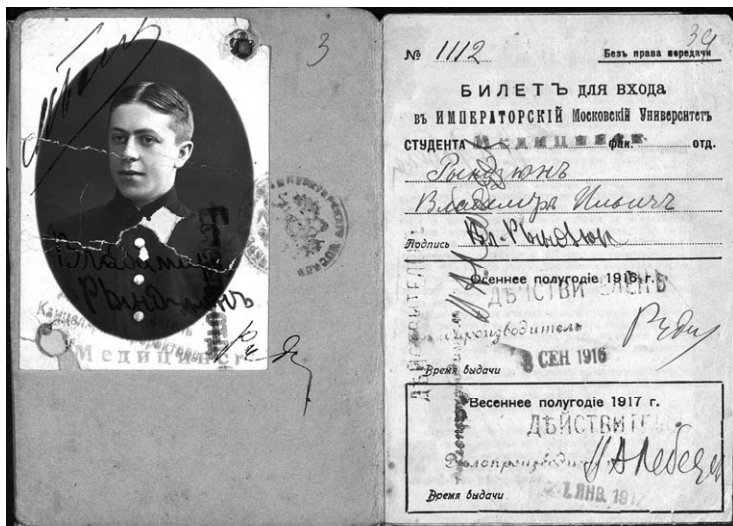 3
Владимиръ
Рындзюнъ
Медицинск
№ 1112
Безъ права передачи
39
БИЛЕТЪ для входа
въ ИМПЕРАТОРСКІЙ Московскій Университетъ
СТУДЕНТА Медицинск фак. отд.
Рындзюнъ
Владимиръ Ильичъ
Подпись Вл. Рындзюн
Осеннее полугодіе 1916 г.
ДѢЙСТВИТЕЛЕНЪ
Делопроизводитель
8 СЕН 1916
Время выдачи
Весеннее полугодіе 1917 г.
ДѢЙСТВИТЕЛ
Делопроизводитель Н А Лебедев
ЯНВ. 1917
Время выдачи